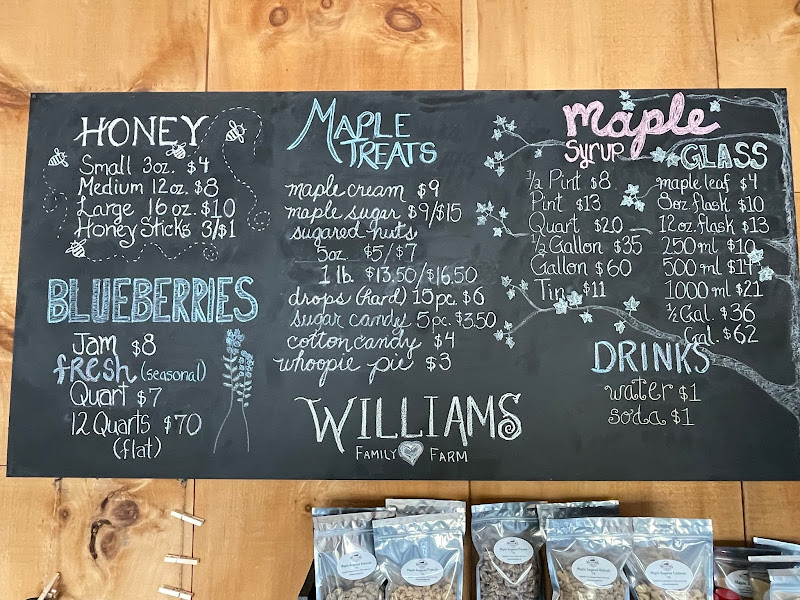 HONEY
Small 3oz. $4
Medium 12oz. $8
Large 16oz. $10
Honey Sticks 3/$1
BLUEBERRIES
Jam $8
fresh (seasonal)
Quart $7
12 Quarts $70
(flat)
MAPLE TREATS
maple cream $9
maple sugar $9/$15
sugared nuts
5oz. $5/$7
1 lb. $13.50/$16.50
drops (hard) 15pc. $6
sugar candy 5pc. $3.50
cotton candy $4
whoopie pie $3
WILLIAMS
FAMILY FARM
maple
syrup
1/2 Pint $8
Pint $13
Quart $20
1/2 Gallon $35
Gallon $60
Tin $11
GLASS
maple leaf $4
8oz. flask $10
12oz. flask $13
250 ml $10
500 ml $14
1000 ml $21
1/2 Gal. $36
Gal. $62
DRINKS
water $1
soda $1